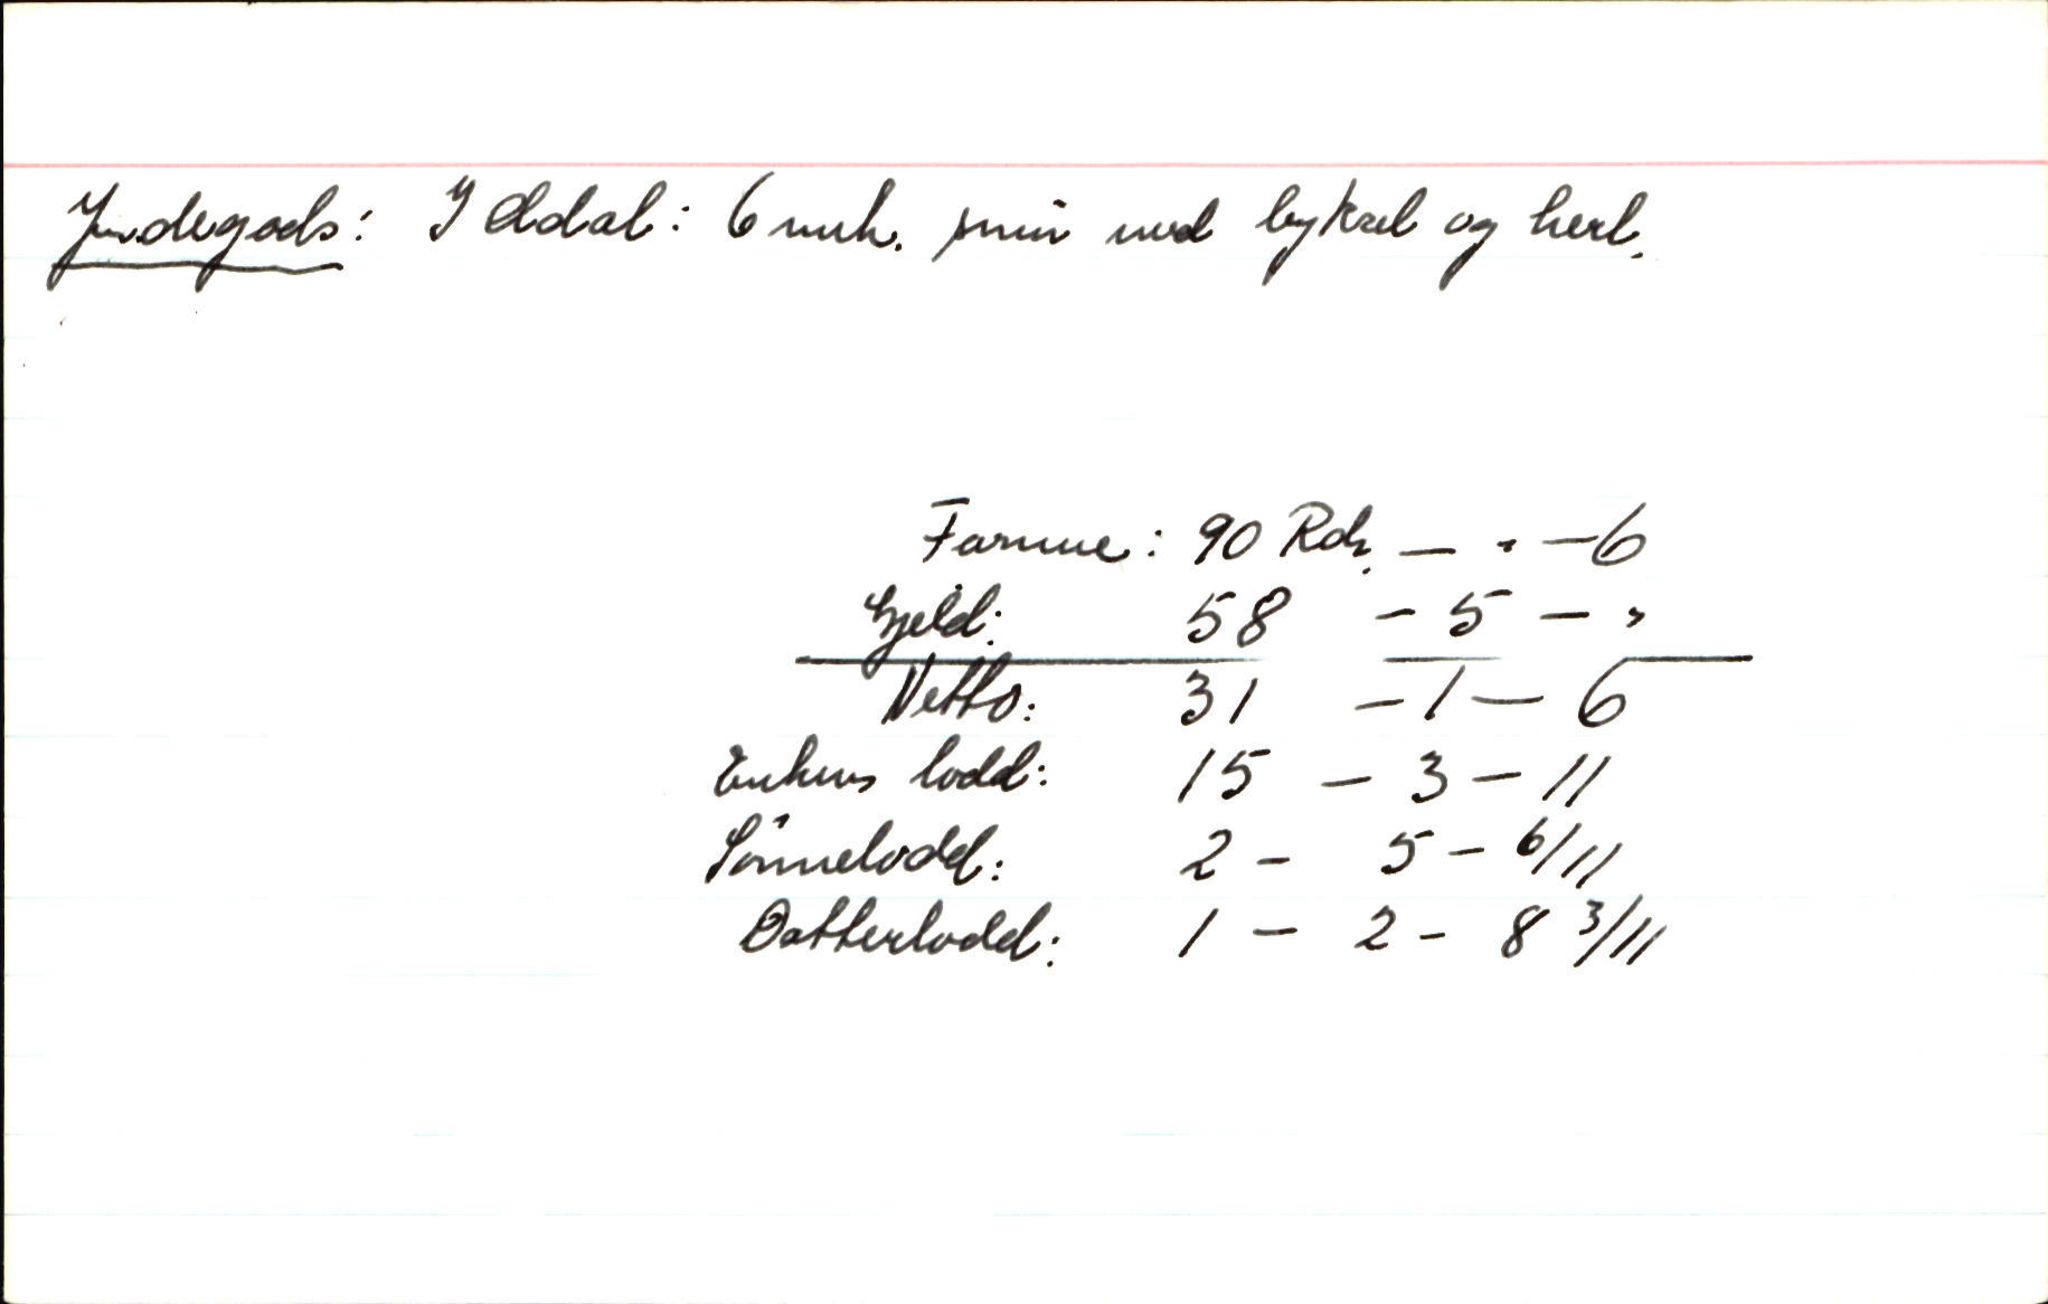 Jordegods: I Ådal: 6 mrk. smør med byksel og herl.
Formue: 90 Rdr. — " — 6
Gjeld: 58 — 5 — "
Netto: 31 — 1 — 6
Enkens lodd: 15 — 3 — 11
Sönnelodd: 2 — 5 — 6/11
Datterlodd: 1 — 2 — 8 3/11